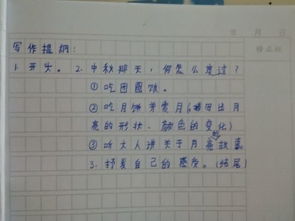 写作提纲:
1.开头。2.中秋那天,你怎么过?
①吃团圆饭。
②吃月饼赏月(写出月
亮的形状、颜色的变化)
③听大人讲关于月亮故事
3.抒发自己的感受。(结尾)